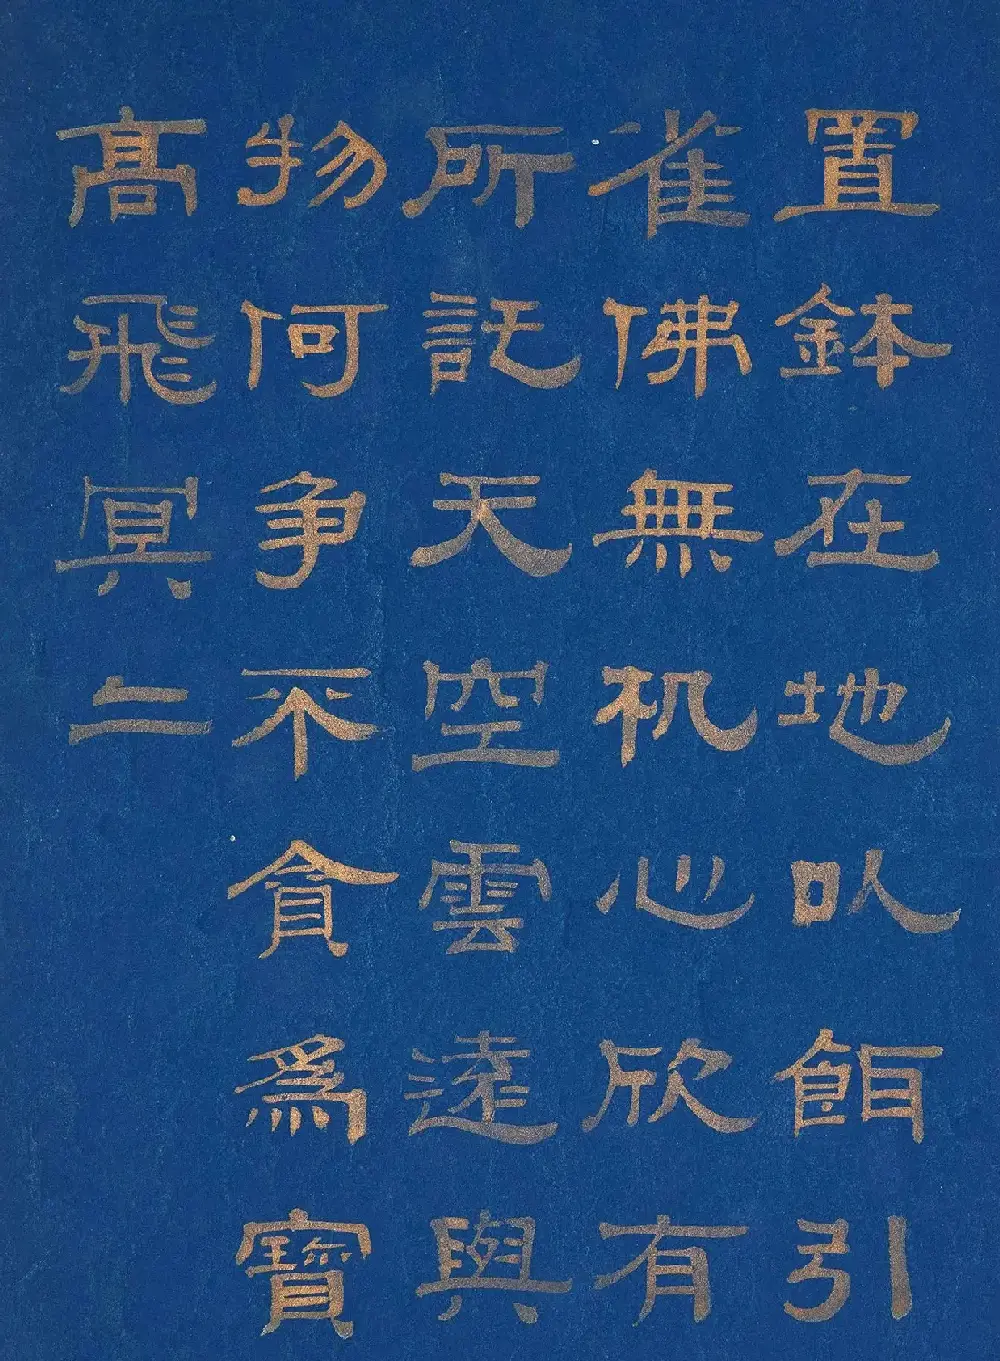 置鉢在地以餌引
雀佛無机心欣有
所託天空雲逵與
物何争不貪爲寶
髙飛冥二